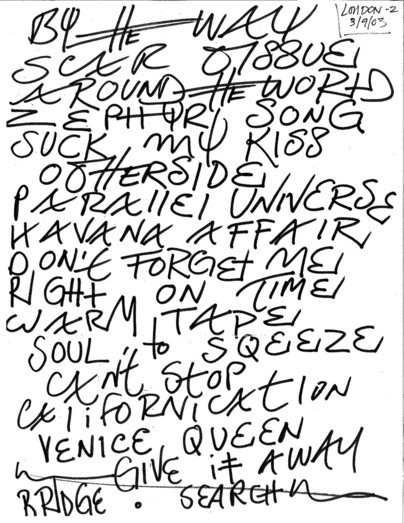 LONDON -2
3/9/03
BY THE WAY
SCAR TISSUE
AROUND THE WORLD
ZEPHYR SONG
SUCK MY KISS
OTHERSIDE
PARAllEl UNIVERSE
HAVANA AFFAIR
DON't FORGEt ME
RIGHt ON TIME
WARM TAPE
SOUL to SQEEZE
CANt StOP
CAliFORNICAtION
VENICE QUEEN
GIVE it AWAY
BRIDGE . SEARCH